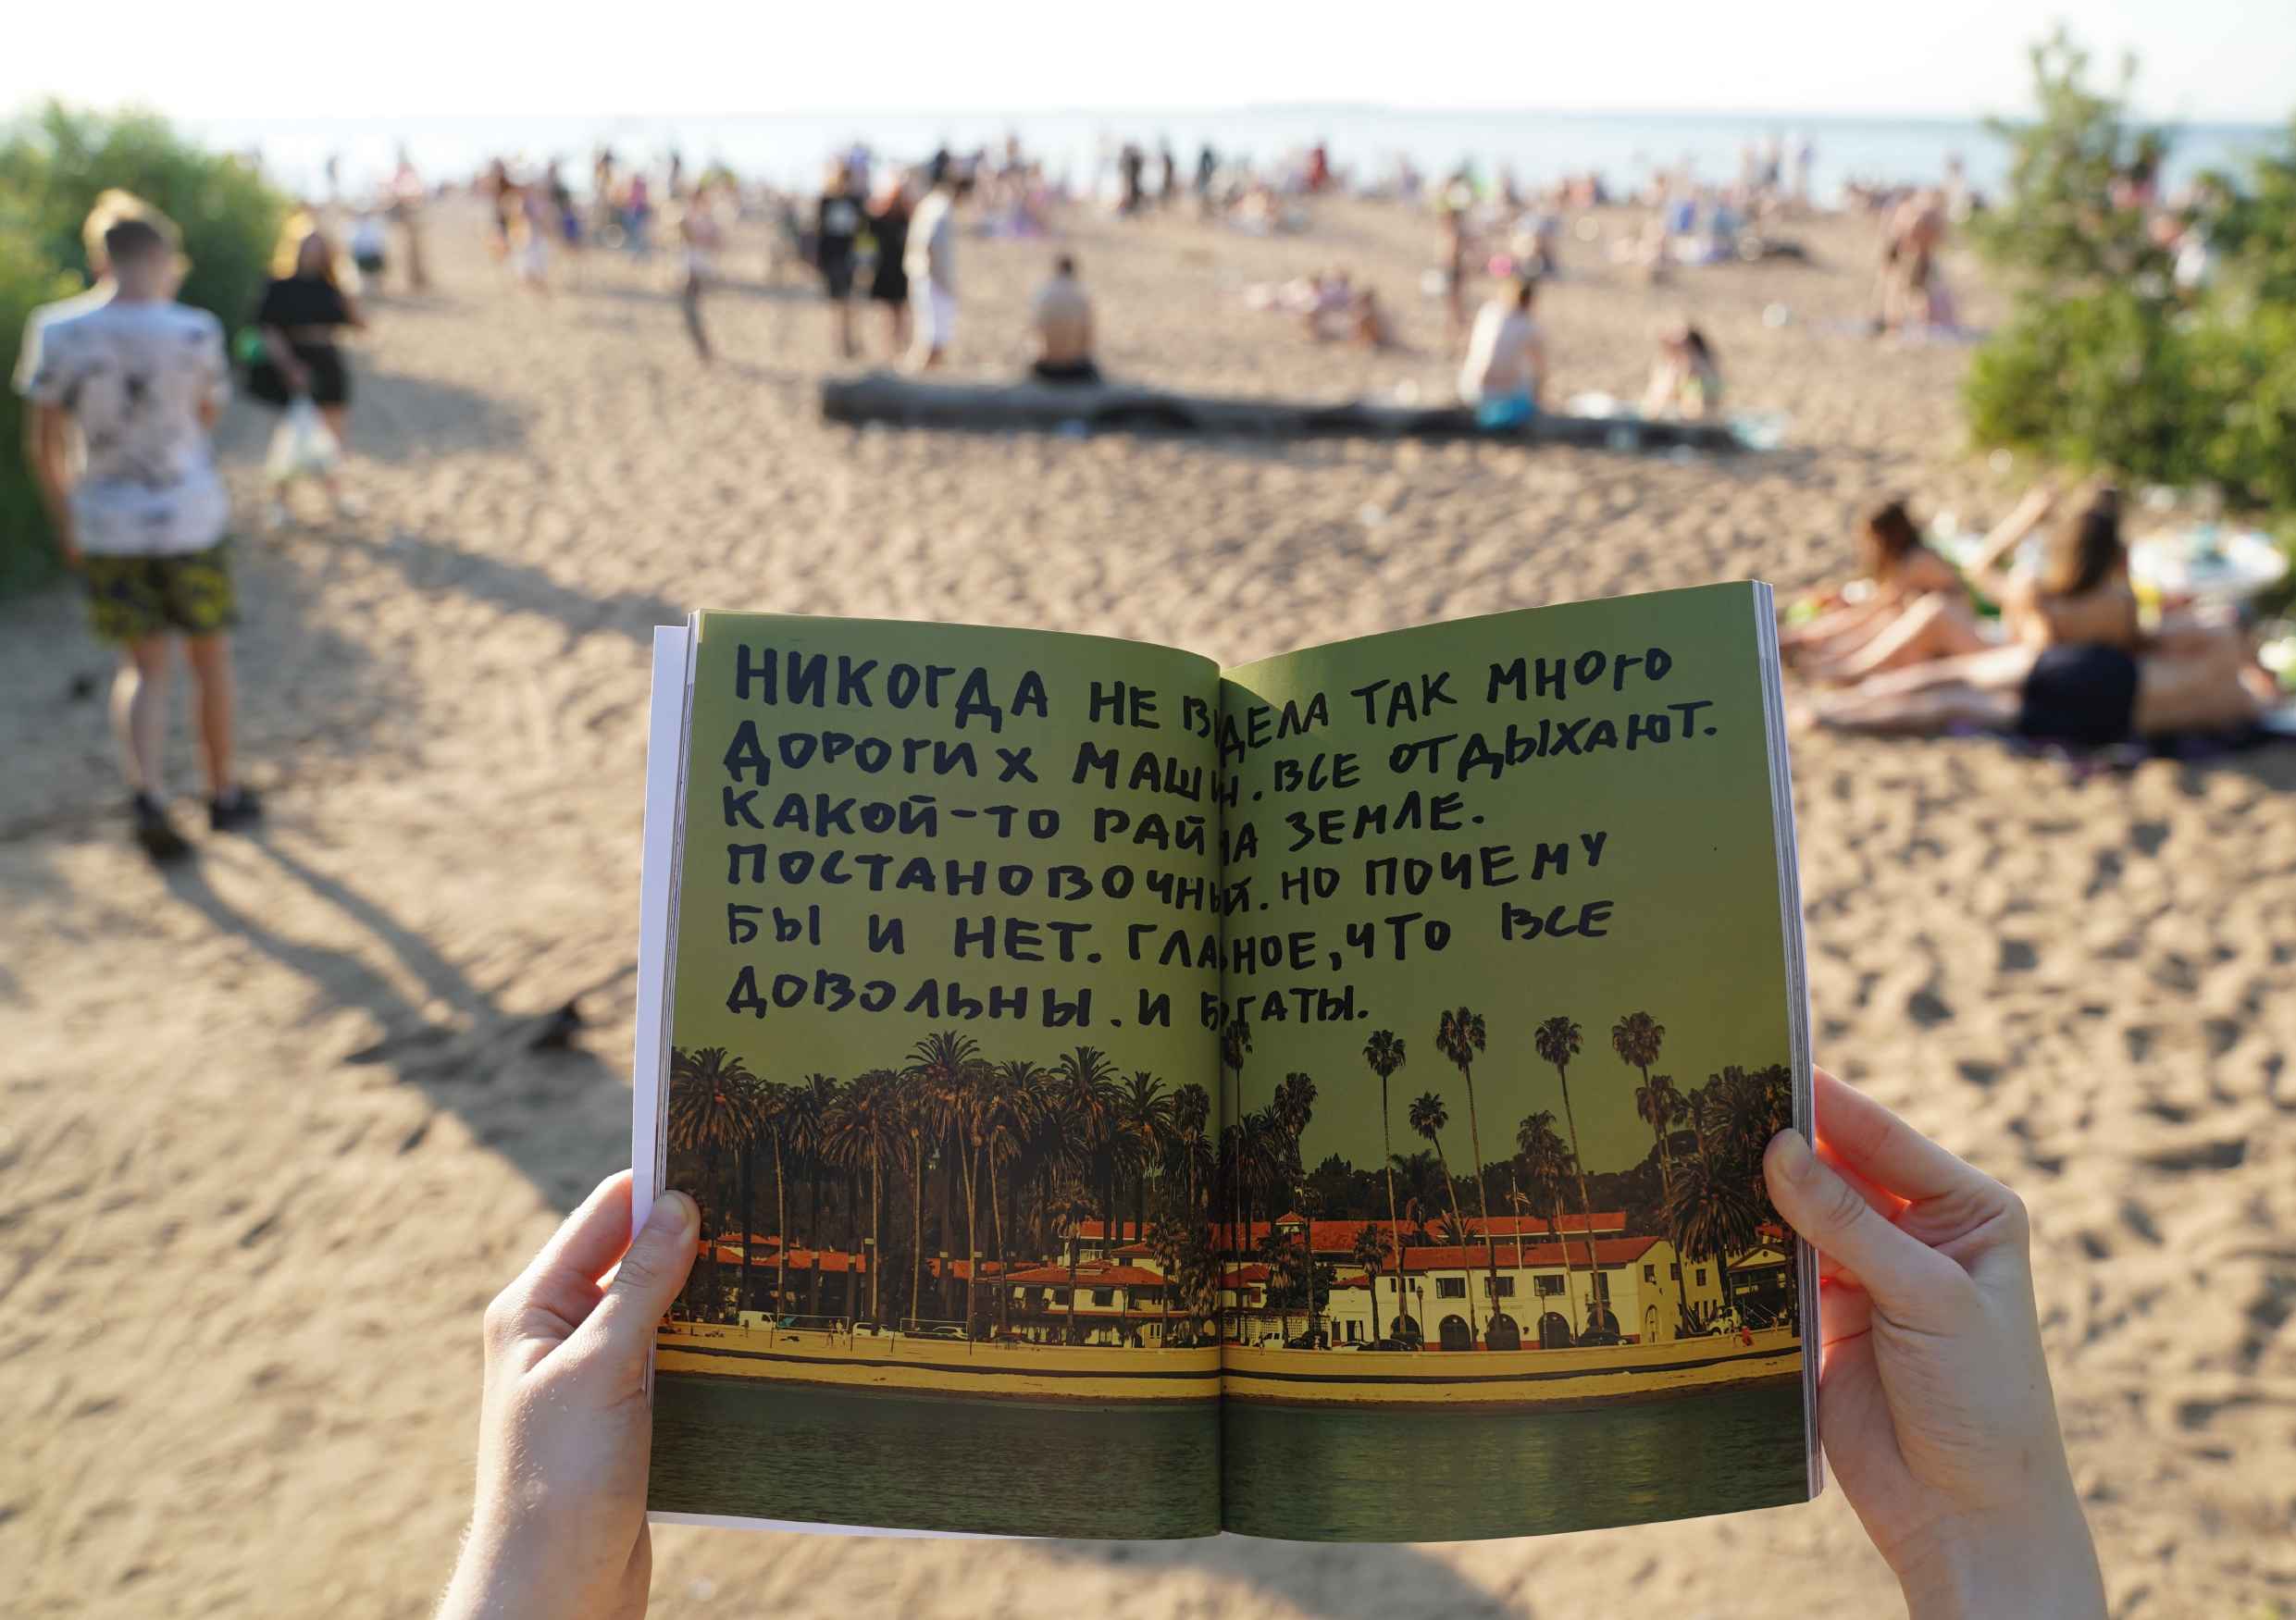 НИКОГДА НЕ ВИДЕЛА ТАК МНОГО
ДОРОГИХ МАШИН. ВСЕ ОТДЫХАЮТ.
КАКОЙ-ТО РАЙ НА ЗЕМЛЕ.
ПОСТАНОВОЧНЫЙ. НО ПОЧЕМУ
БЫ И НЕТ. ГЛАВНОЕ, ЧТО ВСЕ
ДОВОЛЬНЫ. И БОГАТЫ.